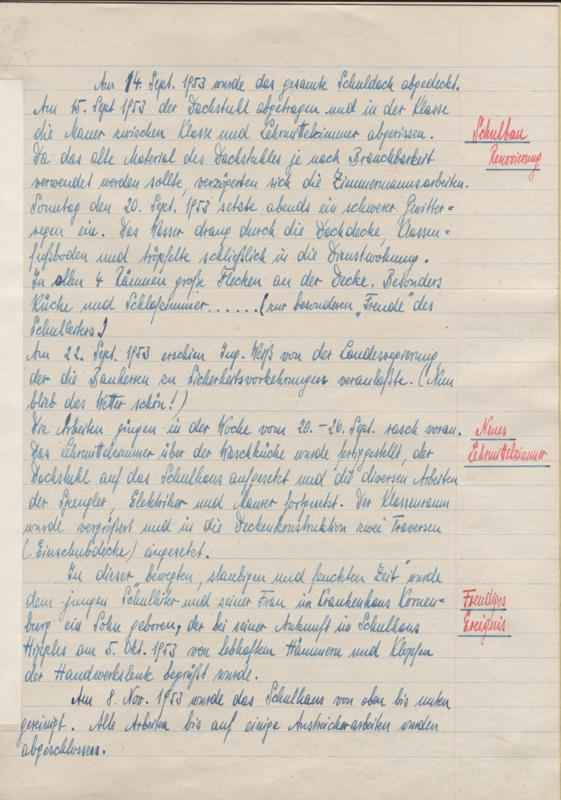 Am 14. Sept. 1953 wurde das gesamte Schuldach abgedeckt.
Am 15. Sept 1953 der Dachstuhl abgetragen und in der Klasse
die Mauer zwischen Klasse und Lehrmittelzimmer abgerissen.
Schulbau
Renovierung
Da das alte Material des Dachstuhles je nach Brauchbarkeit
verwendet werden sollte, verzögerten sich die Zimmermannsarbeiten.
Sonntag den 20. Sept. 1953 setzte abends ein schwerer Gewitter=
regen ein. Das Wasser drang durch die Dachdecke, Klassen=
fußboden und tröpfelte schließlich in die Dienstwohnung.
In allen 4 Räumen große Flecken an der Decke. Besonders
Küche und Schlafzimmer...... (zur besonderen „Freude" des
Schulleiters)
Am 22. Sept. 1953 erschien Ing. Weiß von der Landesregierung
der die Bauherren zu Sicherheitsvorkehrungen veranlaßte. (Nun
blieb das Wetter schön!)
Die Arbeiten gingen in der Woche vom 20.-26. Sept. rasch voran.
Neues
Lehrmittelzimmer
Das Lehrmittelzimmer über der Waschküche wurde fertiggestellt, der
Dachstuhl auf das Schulhaus aufgesetzt und die diversen Arbeiten
der Spengler, Elektriker und Maurer fortgesetzt. Der Klassenraum
wurde vergrößert und in die Deckenkonstruktion zwei Traversen
(Einschubdecke) eingesetzt.
In dieser „bewegten, staubigen und feuchten Zeit" wurde
dem jungen Schulleiter und seiner Frau im Krankenhaus Korneu=
burg ein Sohn geboren, der bei seiner Ankunft im Schulhaus
Freudiges
Ereignis
am 5. Okt. 1953 von lebhaftem Hämmern und Klopfen
der Handwerksleute begrüßt wurde.
Am 8. Nov. 1953 wurde das Schulhaus von oben bis unten
gereinigt. Alle Arbeiten bis auf einige Anstreicherarbeiten wurden
abgeschlossen.